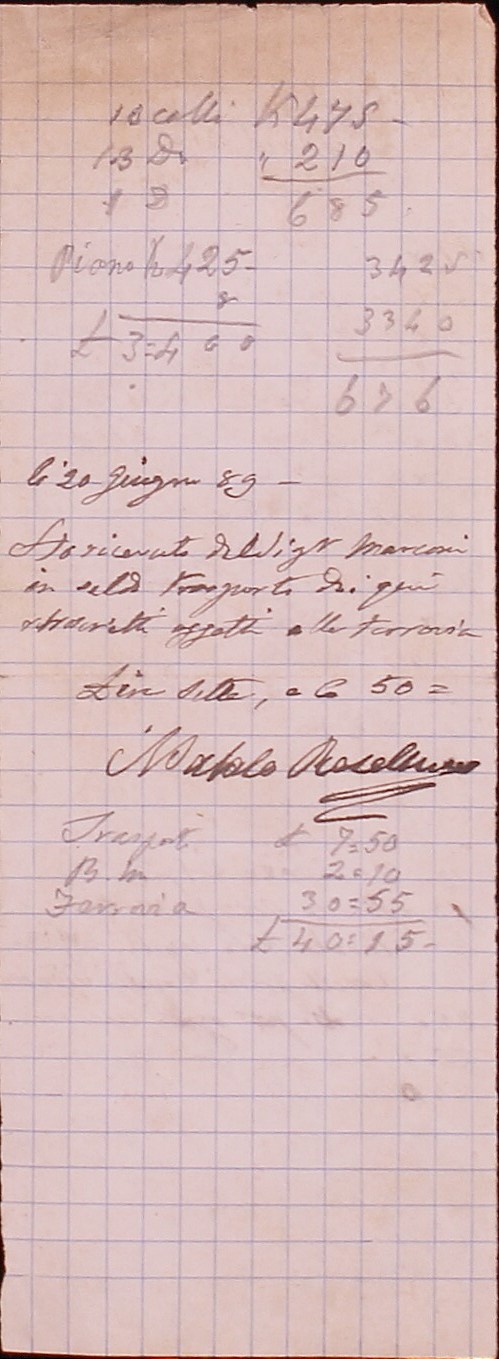 10 colli K 475 -
13 D. " 210
1 D 685
Piano K 425- 3425
8 3340
£ 3=400 676
li 20 Giugno 89 -
Ho ricevuto dal Sigr Marconi
in saldo trasporto dei qui
oggetti alla ferrovia
Lire sette, e C 50 =
Natale
Trasporti £ 7=50
B. 2=10
Ferrovia 30=55
£ 40=15-